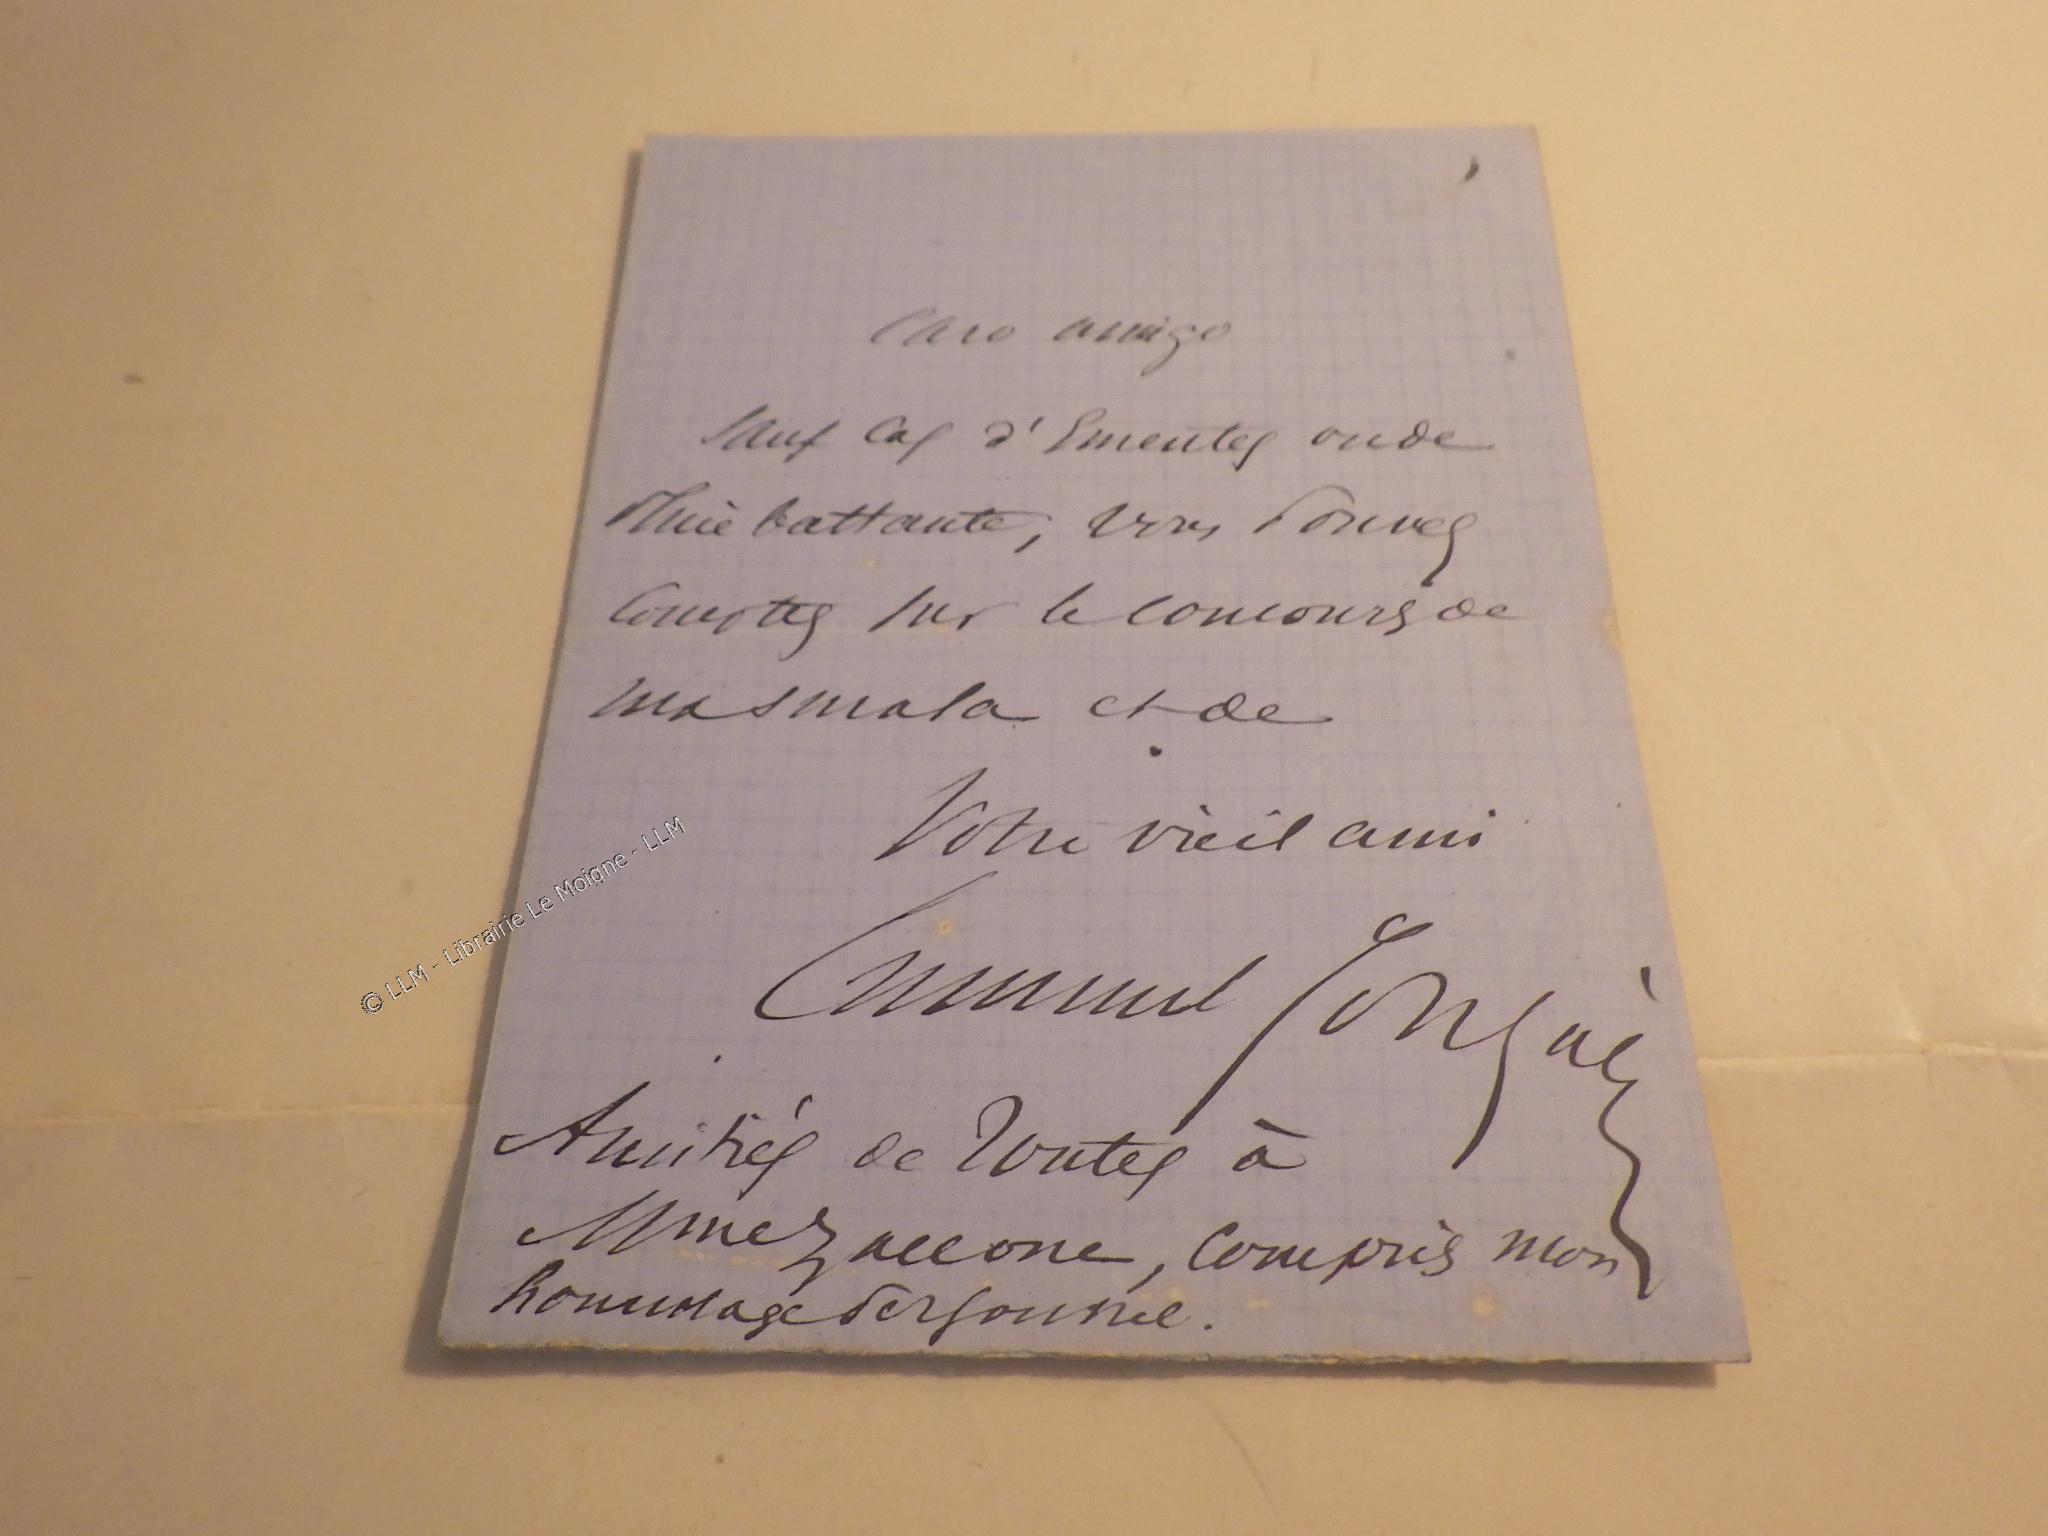 Caro amigo
Sauf cas d'Emeutes ou de
Pluie battante, vous Pouvez
Comptez sur le concours de
ma smala et de
Votre vieil ami
Emmanuel Gonzalès
Amitiés de Toutes à
Mme Zaccone, compris mon
hommage Personnel.
© LLM - Librairie Le Moigne - LLM